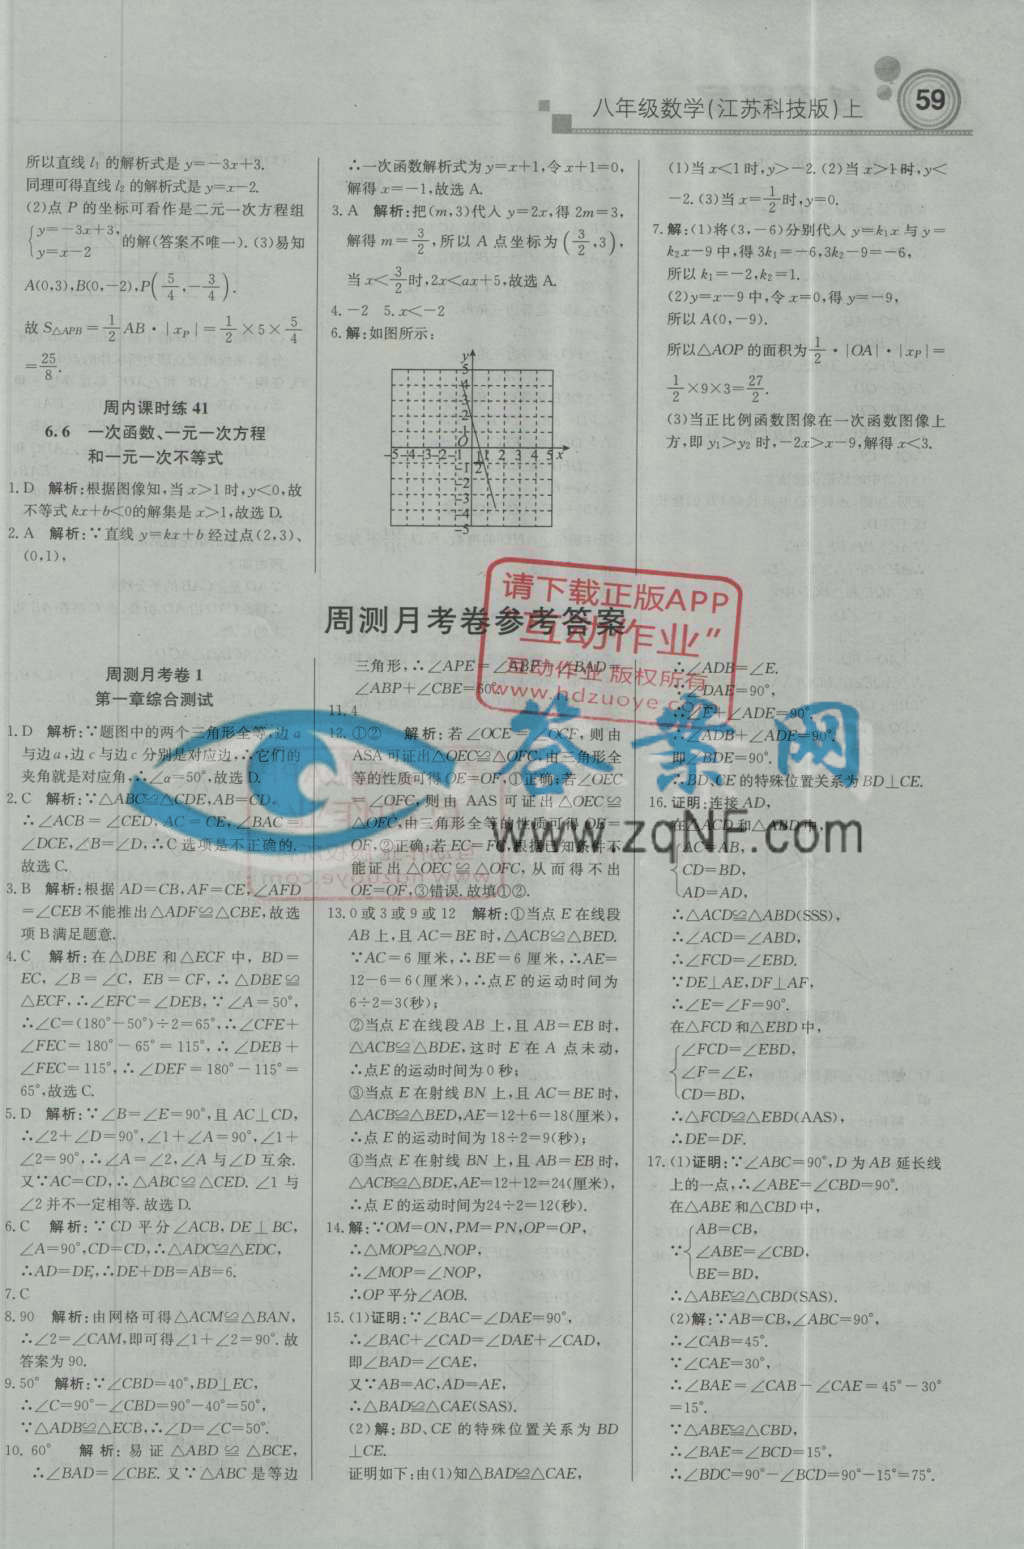 八年级数学(江苏科技版)上
59
所以直线 l₁ 的解析式是 y=-3x+3.
同理可得直线 l₂ 的解析式是 y=x-2.
(2)点 P 的坐标可看作是二元一次方程组
{y=-3x+3,
y=x-2 的解(答案不唯一).(3)易知
A(0,3),B(0,-2),P(5/4,-3/4).
故 S△APB=1/2 AB·|xP|=1/2×5×5/4
=25/8.
周内课时练 41
6.6 一次函数、一元一次方程
和一元一次不等式
1.D 解析:根据图像知,当 x>1 时,y<0,故
不等式 kx+b<0的解集是 x>1,故选 D.
2.A 解析:∵直线 y=kx+b 经过点(2,3)、
(0,1),
∴一次函数解析式为 y=x+1,令 x+1=0,
解得 x=-1,故选 A.
3.A 解析:把(m,3)代入 y=2x,得 2m=3,
解得 m=3/2,所以 A 点坐标为(3/2,3),
当 x<3/2时,2x<ax+5,故选 A.
4.-2 5.x<-2
6.解:如图所示:
y
5
4
3
2
1
O
-5-4-3-2-1 1 2 3 4 5 x
-1
-2
-3
-4
-5
(1)当 x<1 时,y>-2.(2)当 x>1 时,y<
-2.(3)当 x=1/2时,y=0.
7.解:(1)将(3,-6)分别代入 y=k₁x 与 y=
k₂x-9 中,得 3k₁=-6,3k₂-9=-6,
所以 k₁=-2,k₂=1.
(2)y=x-9 中,令 x=0,得 y=-9,
所以 A(0,-9).
所以△AOP 的面积为1/2·|OA|·|xP|=
1/2×9×3=27/2.
(3)当正比例函数图像在一次函数图像上
方,即 y₁>y₂ 时,-2x>x-9,解得 x<3.
周测月考卷参考答案
请下载正版APP
"互动作业"
互动作业 版权所有
www.hdzuoye.com
答案网
www.zqNF.com
周测月考卷 1
第一章综合测试
1.D 解析:∵题图中的两个三角形全等,边 a
与边 a,边 c 与边 c 分别是对应边,∴它们的
夹角就是对应角,∴∠α=50°,故选 D.
2.C 解析:∵△ABC≌△CDE,AB=CD,
∴∠ACB=∠CED,AC=CE,∠BAC=
∠DCE,∠B=∠D,∴C 选项是不正确的.
故选 C.
3.B 解析:根据 AD=CB,AF=CE,∠AFD
=∠CEB 不能推出△ADF≌△CBE,故选
项 B 满足题意.
4.C 解析:在△DBE 和△ECF 中,BD=
EC,∠B=∠C,EB=CF,∴△DBE≌
△ECF,∴∠EFC=∠DEB,∵∠A=50°,
∴∠C=(180°-50°)÷2=65°,∴∠CFE+
∠FEC=180°-65°=115°,∴∠DEB+
∠FEC=115°,∴∠DEF=180°-115°=
65°,故选 C.
5.D 解析:∵∠B=∠E=90°,且 AC⊥CD,
∴∠2+∠D=90°,∠1+∠A=90°,∠1+
∠2=90°,∴∠A=∠2,∠A 与∠D 互余.
又∵AC=CD,∴△ABC≌△CED. ∠1 与
∠2 并不一定相等. 故选 D.
6.C 解析:∵CD 平分∠ACB,DE⊥BC,
∠A=90°,CD=CD,∴△ADC≌△EDC,
∴AD=DE,∴DE+DB=AB=6.
7.C
8.90 解析:由网格可得△ACM≌△BAN,
∴∠2=∠CAM,即可得∠1+∠2=90°.故
答案为 90.
9.50° 解析:∵∠CBD=40°,BD⊥EC,
∴∠C=90°-∠CBD=90°-40°=50°,
∵△ADB≌△ECB,∴∠D=∠C=50°.
10.60° 解析:易证△ABD≌△BCE,
∴∠BAD=∠CBE.又∵△ABC 是等边
三角形,∴∠APE=∠ABP+∠BAD=
∠ABP+∠CBE=60°.
11.4
12.①② 解析:若∠OCE=∠OCF,则由
ASA 可证出△OEC≌△OFC,由三角形全
等的性质可得 OE=OF,①正确;若∠OEC
=∠OFC,则由 AAS 可证出△OEC≌
△OFC,由三角形全等的性质可得 OE=
OF,②正确;若 EC=FC,根据已知条件不
能证出△OEC≌△OFC,从而得不出
OE=OF,③错误.故填①②.
13.0 或 3 或 9 或 12 解析:①当点 E 在线段
AB 上,且 AC=BE 时,△ACB≌△BED.
∵AC=6 厘米,∴BE=6 厘米,∴AE=
12-6=6(厘米),∴点E 的运动时间为
6÷2=3(秒);
②当点 E 在线段 AB 上,且 AB=EB 时,
△ACB≌△BDE,这时 E 在 A 点未动,
∴点E 的运动时间为0 秒;
③当点 E 在射线 BN 上,且 AC=BE 时,
△ACB≌△BED,AE=12+6=18(厘米),
∴点 E 的运动时间为 18÷2=9(秒);
④当点 E 在射线 BN 上,且 AB=EB 时,
△ACB≌△BDE,AE=12+12=24(厘米),
∴点 E 的运动时间为24÷2=12(秒).
14.解:∵OM=ON,PM=PN,OP=OP,
∴△MOP≌△NOP,
∴∠MOP=∠NOP,
∴OP 平分∠AOB.
15.(1)证明:∵∠BAC=∠DAE=90°,
∴∠BAC+∠CAD=∠DAE+∠CAD,
即∠BAD=∠CAE,
又∵AB=AC,AD=AE,
∴△BAD≌△CAE(SAS).
(2)解:BD、CE 的特殊位置关系为 BD
⊥CE.
证明如下:由(1)知△BAD≌△CAE,
∴∠ADB=∠E.
∵∠DAE=90°,
∴∠E+∠ADE=90°.
∴∠ADB+∠ADE=90°.
即∠BDE=90°.
∴BD、CE 的特殊位置关系为 BD⊥CE.
16.证明:连接 AD,
在△ACD 和△ABD 中,
{AC=AB,
CD=BD,
AD=AD,
∴△ACD≌△ABD(SSS),
∴∠ACD=∠ABD,
∴∠FCD=∠EBD.
∵DE⊥AE,DF⊥AF,
∴∠E=∠F=90°.
在△FCD 和△EBD 中,
{∠FCD=∠EBD,
∠F=∠E,
CD=BD,
∴△FCD≌△EBD(AAS),
∴DE=DF.
17.(1)证明:∵∠ABC=90°,D 为 AB 延长线
上的一点,∴∠ABE=∠CBD=90°.
在△ABE 和△CBD 中,
∵{AB=CB,
∠ABE=∠CBD,
BE=BD,
∴△ABE≌△CBD(SAS).
(2)解:∵AB=CB,∠ABC=90°,
∴∠CAB=45°.
∵∠CAE=30°,
∴∠BAE=∠CAB-∠CAE=45°-30°
=15°.
∵△ABE≌△CBD,
∴∠BAE=∠BCD=15°,
∴∠BDC=90°-∠BCD=90°-15°=75°.